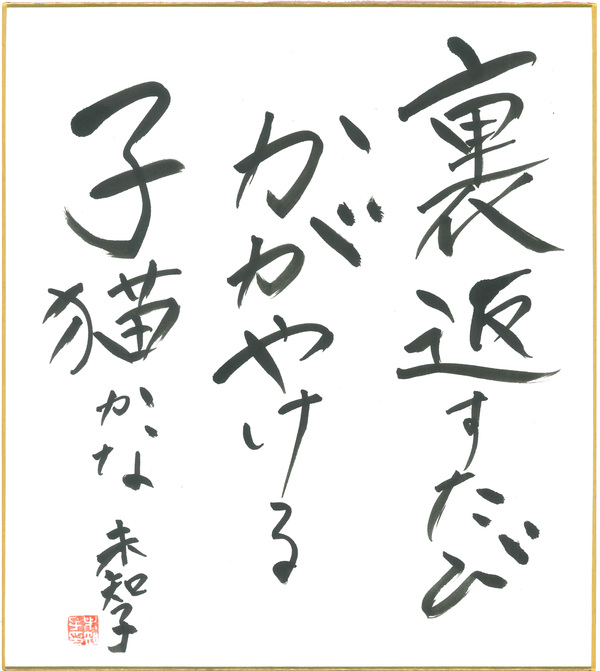 裏返すたび
かがやける
子猫かな
未知子